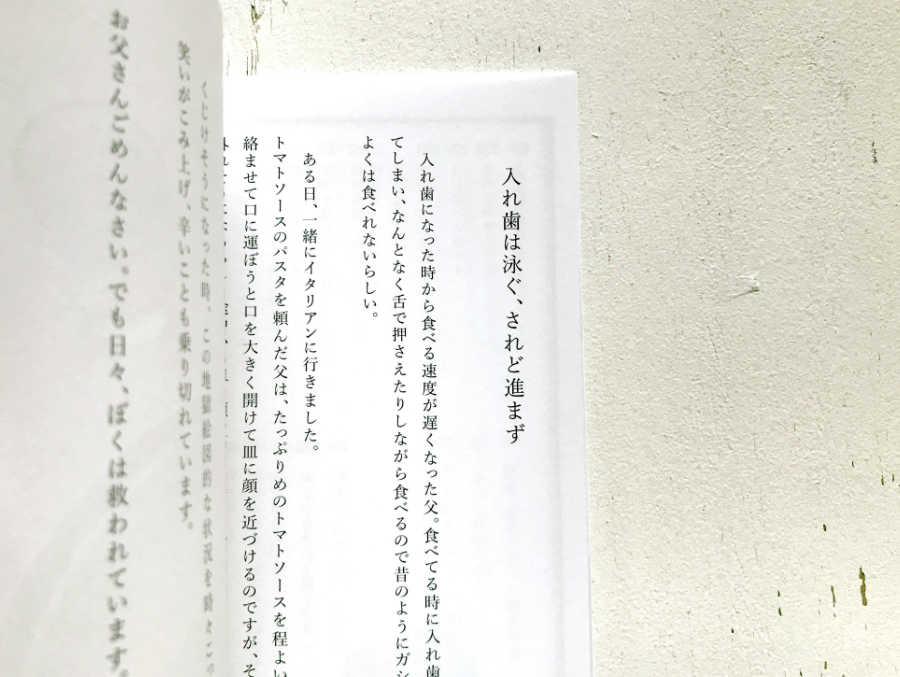 入れ歯は泳ぐ、されど進まず
入れ歯になった時から食べる速度が遅くなった父。食べてる時に入れ歯
てしまい、なんとなく舌で押さえたりしながら食べるので昔のようにガシ
よくは食べれないらしい。
ある日、一緒にイタリアンに行きました。
トマトソースのパスタを頼んだ父は、たっぷりめのトマトソースを程よい
絡ませて口に運ぼうと口を大きく開けて皿に顔を近づけるのですが、そ
くじけそうになった時、この地獄絵図的な状況を
笑いがこみ上げ、辛いことも乗り切れています。
お父さんごめんなさい。でも日々、ぼくは救われています。